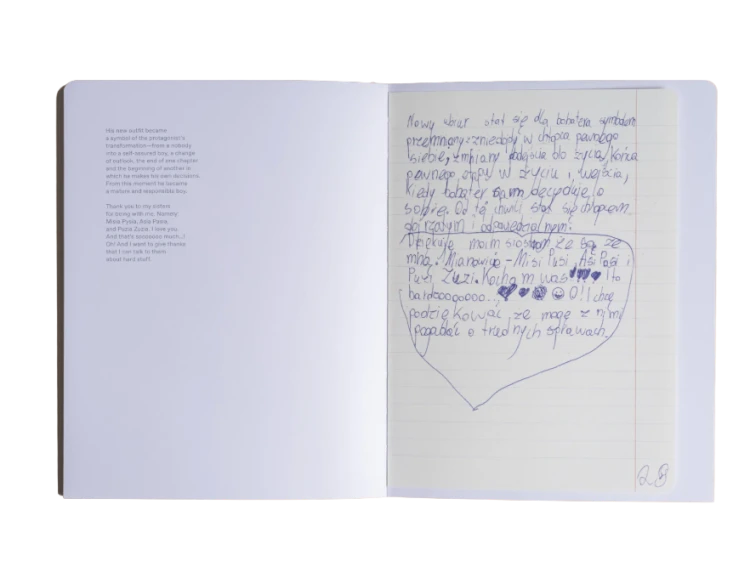 His new outfit became
a symbol of the protagonist's
transformation—from a nobody
into a self-assured boy, a change
of outlook, the end of one chapter
and the beginning of another in
which he makes his own decisions.
From this moment he became
a mature and responsible boy.
Thank you to my sisters
for being with me. Namely:
Misia Pysia, Asia Pasia,
and Puzia Zuzia. I love you.
And that's sooooooo much...!
Oh! And I want to give thanks
that I can talk to them
about hard stuff.
Nowy ubiur stał się dla bohatera symbolem
przemiany: z niedojdy w chłopca pewnego
siebie, zmiany podejścia do życia, końca
pewnego etapu w życiu i wejścia,
kiedy bohater sam decyduje o
sobie. Od tej chwili stał się chłopcem
dojrzałym i odpowiedzialnym.
Dziękuję moim siostrom, że są ze
mną. Mianowicie - Misi Pysi, Asi Pasi i
Puzi Zuzi. Kocham was I to
bardoooooooo... O! I chcę
podziękować, że mogę z nimi
pogadać o trudnych sprawach.
28